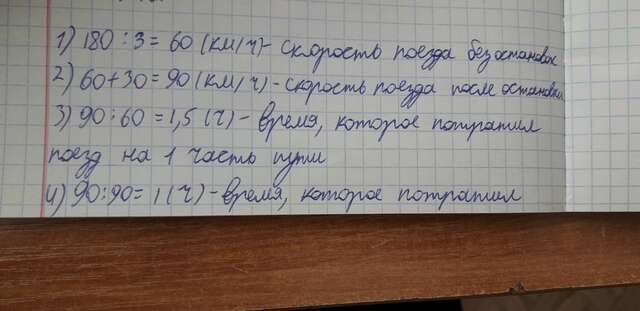 1) 180 : 3 = 60 (км/ч) - скорость поезда без остановок
2) 60 + 30 = 90 (км/ч) - скорость поезда после остановки
3) 90 : 60 = 1,5 (ч) - время, которое потратил
поезд на 1 часть пути
4) 90 : 90 = 1 (ч) - время, которое потратил